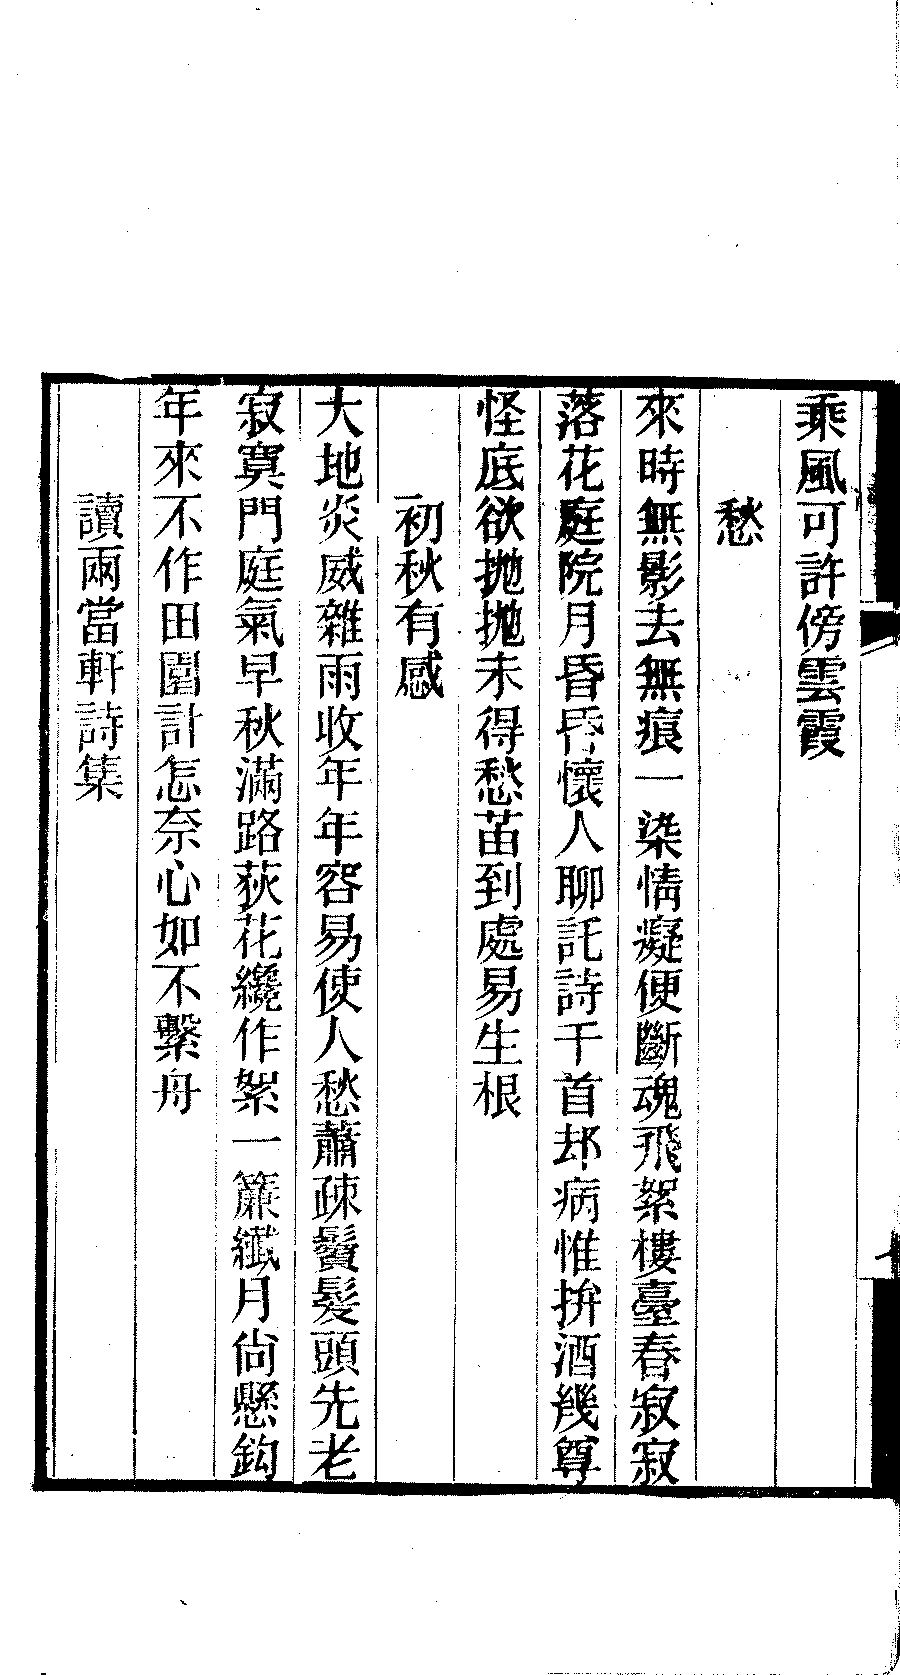 乘風可許傍雲霞
愁
來時無影去無痕一染情癡便斷魂飛絮樓臺春寂寂
落花庭院月昏昏懷人聊託詩千首却病惟拚酒幾尊
怪底欲拋拋未得愁苗到處易生根
初秋有感
大地炎威雜雨收年年容易使人愁蕭疎鬢髮頭先老
寂寞門庭氣早秋滿路荻花纔作絮一簾纖月尙懸鈎
年來不作田園計怎奈心如不繫舟
讀兩當軒詩集